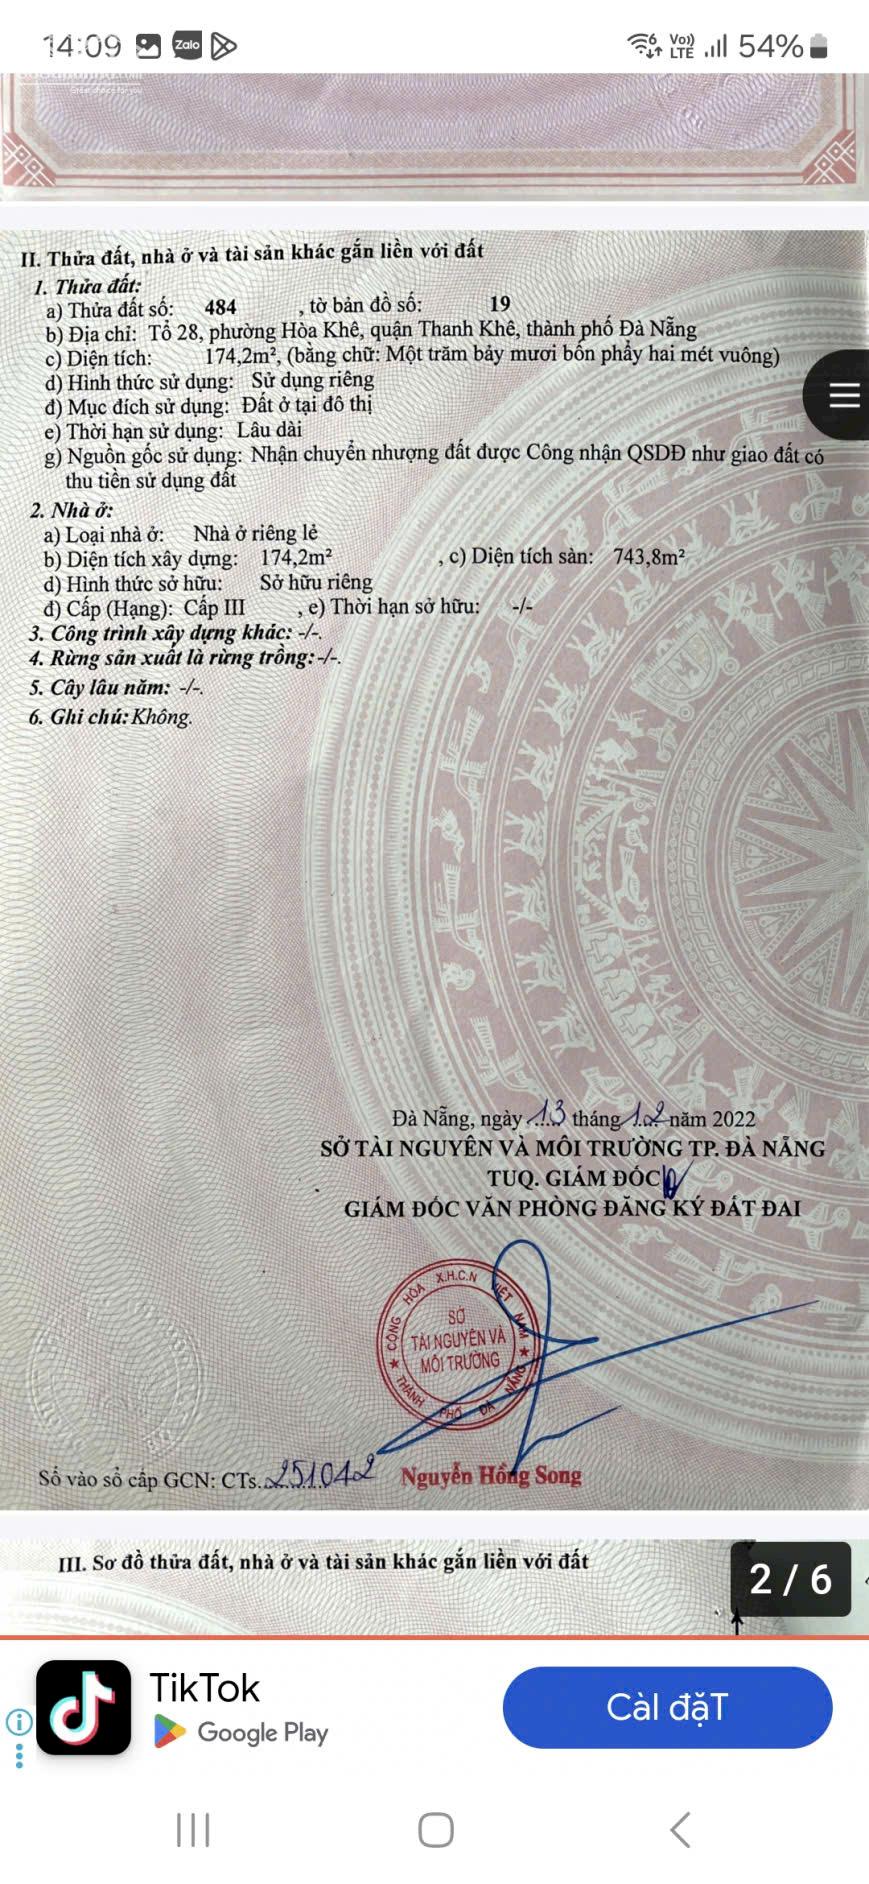 14:09 Zalo Vo)) LTE 54%
Great choice for you
II. Thửa đất, nhà ở và tài sản khác gắn liền với đất
1. Thửa đất:
a) Thửa đất số: 484 , tờ bản đồ số: 19
b) Địa chỉ: Tổ 28, phường Hòa Khê, quận Thanh Khê, thành phố Đà Nẵng
c) Diện tích: 174,2m², (bằng chữ: Một trăm bảy mươi bốn phẩy hai mét vuông)
d) Hình thức sử dụng: Sử dụng riêng
đ) Mục đích sử dụng: Đất ở tại đô thị
e) Thời hạn sử dụng: Lâu dài
g) Nguồn gốc sử dụng: Nhận chuyển nhượng đất được Công nhận QSDĐ như giao đất có
thu tiền sử dụng đất
2. Nhà ở:
a) Loại nhà ở: Nhà ở riêng lẻ
b) Diện tích xây dựng: 174,2m² , c) Diện tích sàn: 743,8m²
d) Hình thức sở hữu: Sở hữu riêng
đ) Cấp (Hạng): Cấp III , e) Thời hạn sở hữu: -/-
3. Công trình xây dựng khác: -/-.
4. Rừng sản xuất là rừng trồng: -/-.
5. Cây lâu năm: -/-.
6. Ghi chú: Không.
Đà Nẵng, ngày 13 tháng 12 năm 2022
SỞ TÀI NGUYÊN VÀ MÔI TRƯỜNG TP. ĐÀ NẴNG
TUQ. GIÁM ĐỐC
GIÁM ĐỐC VĂN PHÒNG ĐĂNG KÝ ĐẤT ĐAI
CỘNG HÒA X.H.C.N VIỆT NAM
SỞ
TÀI NGUYÊN VÀ
MÔI TRƯỜNG
THÀNH PHỐ ĐÀ NẴNG
Số vào sổ cấp GCN: CTs.251042 Nguyễn Hồng Song
III. Sơ đồ thửa đất, nhà ở và tài sản khác gắn liền với đất
2 / 6
TikTok
Google Play
Càl đặT